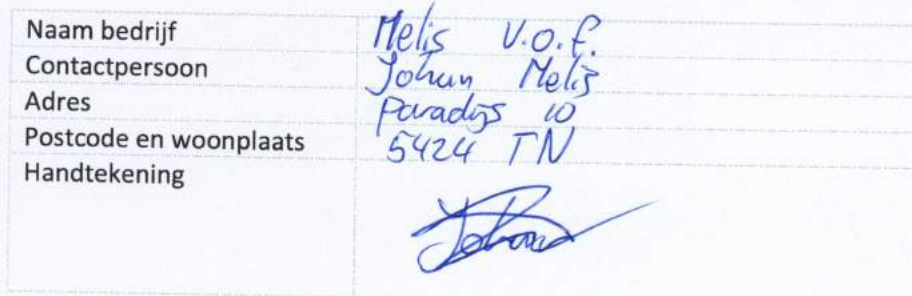 Naam bedrijf Melis V.O.F.
Contactpersoon Johan Melis
Adres Paradijs 10
Postcode en woonplaats 5424 TN
Handtekening Johan